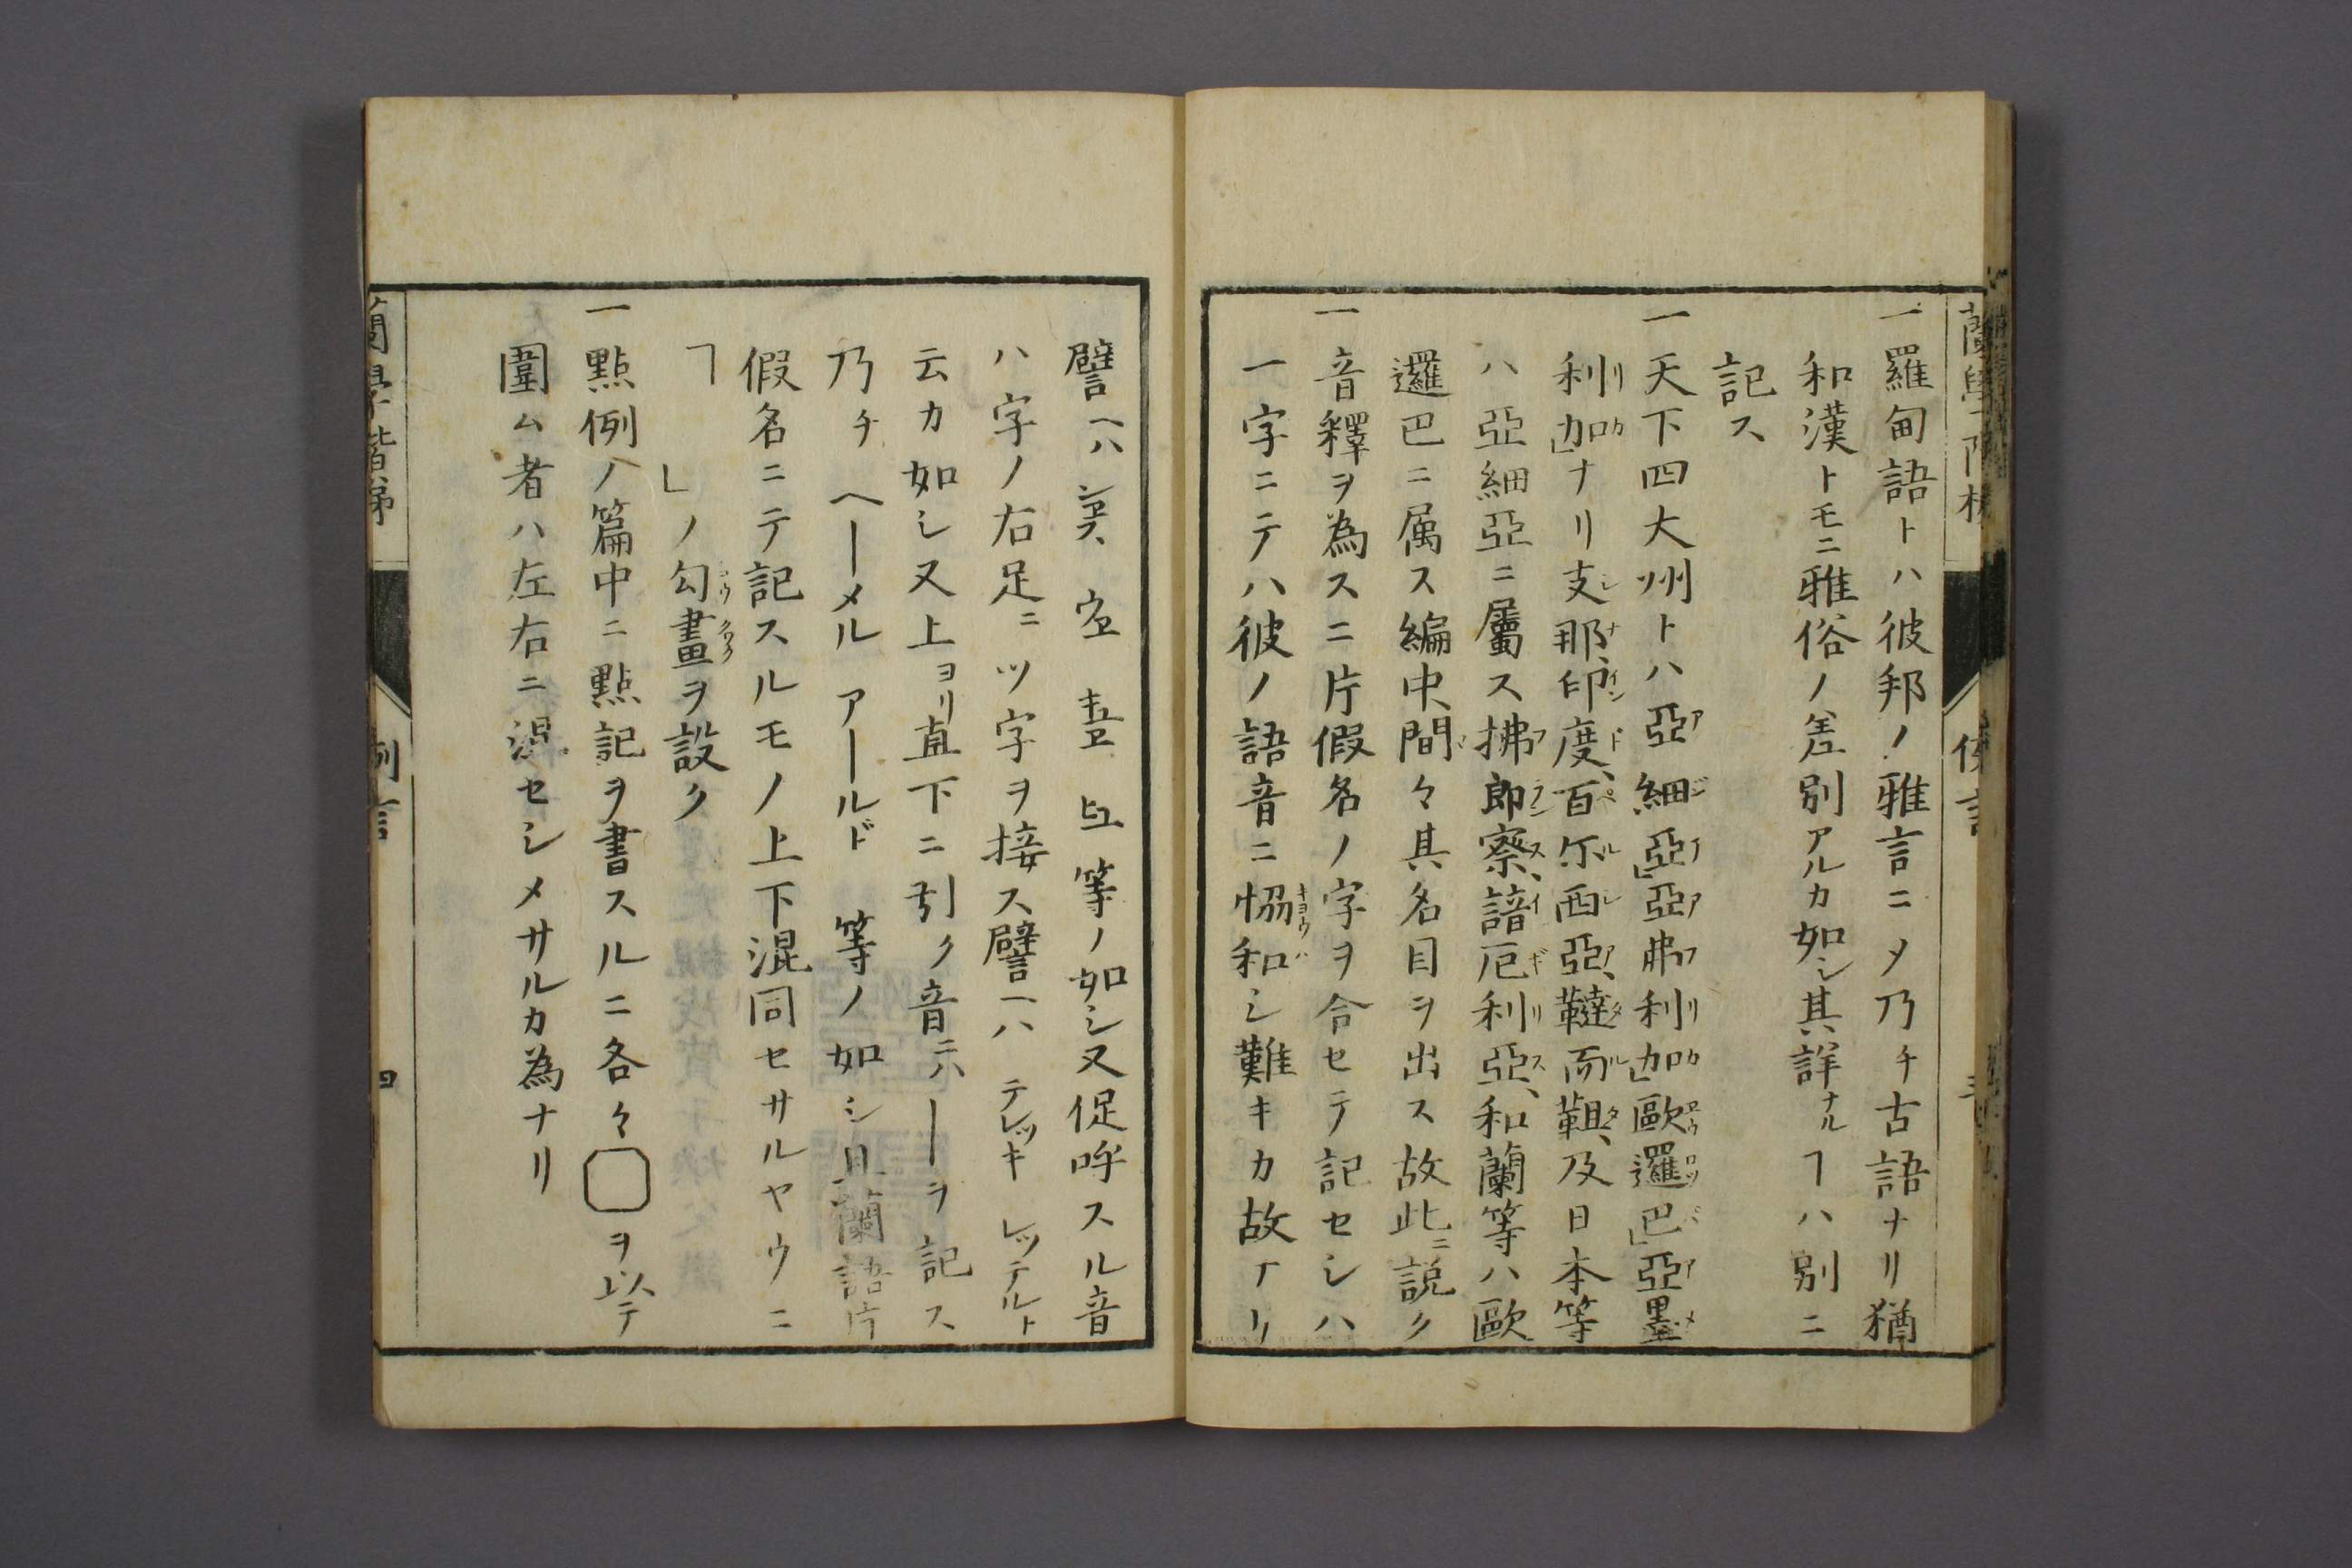 一羅甸語トハ彼邦ノ雅言ニメ乃チ古語ナリ猶
和漢トモニ雅俗ノ差別アルカ如シ其詳ナルヿハ別ニ
記ス
一天下四大州トハ亞細亞亞弗利加歐邏巴亞墨
利加ナリ支那、印度、百尓西亞、韃而靼、及日本等
ハ亞細亞ニ屬ス拂郎察、諳厄利亞、和蘭等ハ歐
邏巴ニ属ス編中、間々其名目ヲ出ス故此ニ説ク
一音釋ヲ為スニ片假名ノ字ヲ合セテ記セシハ
一字ニテハ彼ノ語音ニ恊和シ難キカ故ナリ
譬ヘハ 等ノ如シ又促呼スル音
ハ字ノ右足ニツ字ヲ接ス譬ヘハ テレッキ レッテルト
云カ如シ又上ヨリ直下ニ引ク音ニハーヲ記ス
乃チ ヘーメル アールド 等ノ如シ且蘭語片
假名ニテ記スルモノ上下混同セサルヤウニ
﹁ ﹂ノ勾畫ヲ設ク
一點例ノ篇中ニ點記ヲ書スルニ各々 ヲ以テ
圍ム者ハ左右ニ混セシメサルカ為ナリ
蘭學階梯
例言
四